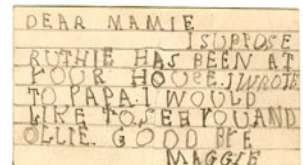 DEAR MAMIE
I SUPPOSE
RUTHIE HAS BEEN AT
YOUR HOUSE. I WROTE
TO PAPA. I WOULD
LIKE TO SEE YOU AND
OLLIE. GOOD BYE
MAGGIE